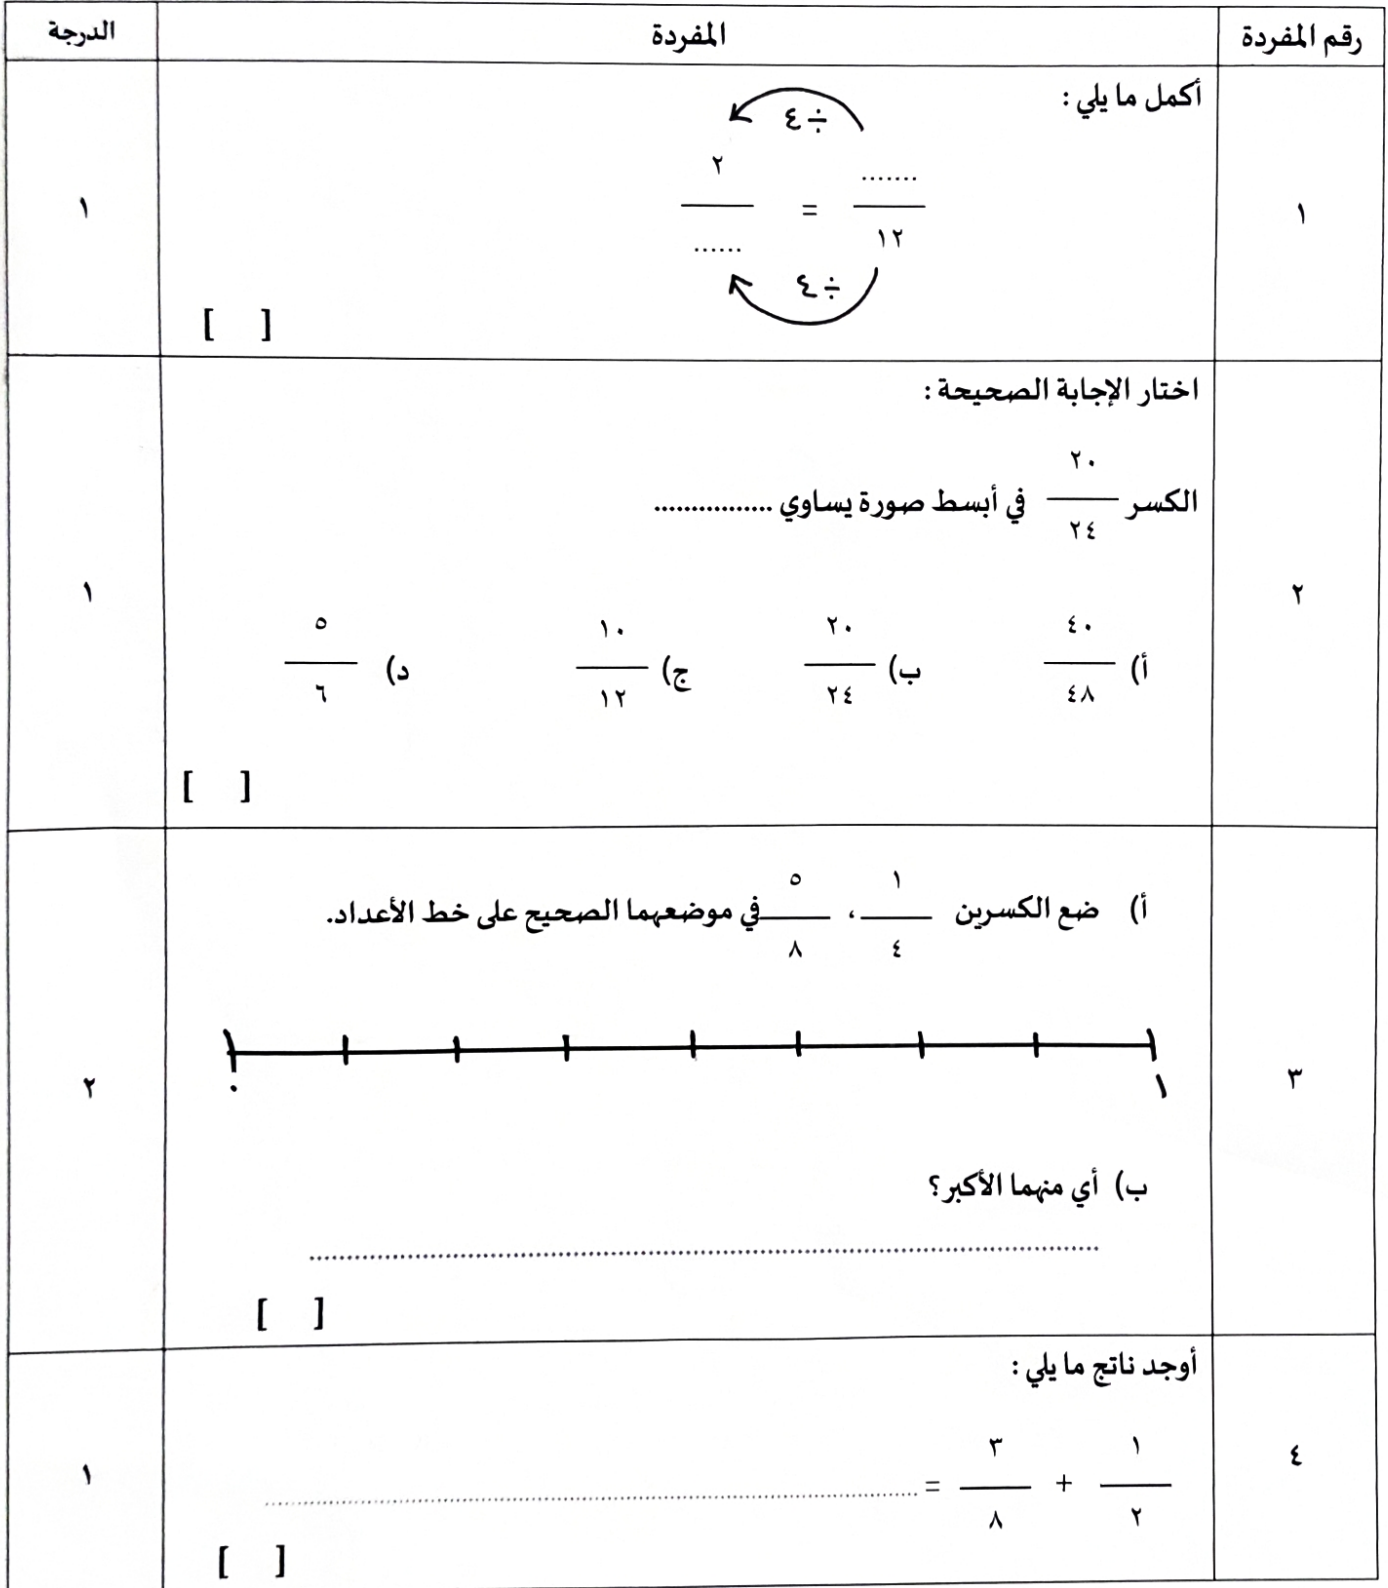 رقم المفردة المفردة الدرجة
١ أكمل ما يلي : ١
÷٤
....... / ١٢ = ٢ / ......
÷٤
[ ]
٢ اختار الإجابة الصحيحة : ١
الكسر ٢٠ / ٢٤ في أبسط صورة يساوي ................
أ) ٤٠ / ٤٨ ب) ٢٠ / ٢٤ ج) ١٠ / ١٢ د) ٥ / ٦
[ ]
٣ أ) ضع الكسرين ١ / ٤ ، ٥ / ٨ في موضعهما الصحيح على خط الأعداد. ٢
٠ ١
ب) أي منهما الأكبر؟
................................................
[ ]
٤ أوجد ناتج ما يلي : ١
١ / ٢ + ٣ / ٨ = ................................................
[ ]